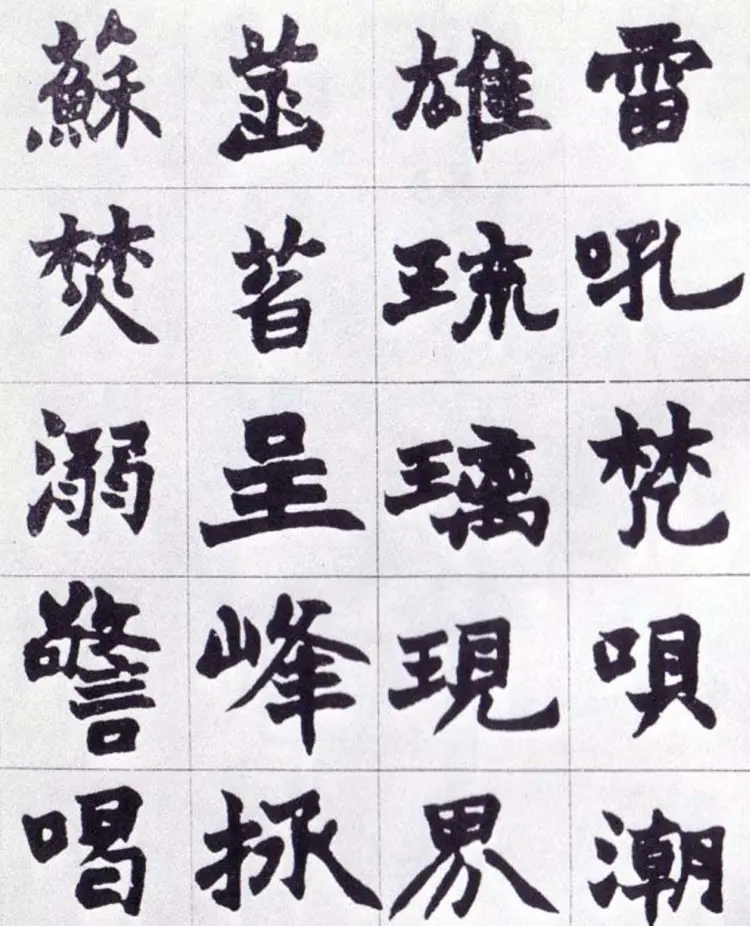 雷吼梵唄潮
雄琉璃現界
菡萏呈峰拯
蘇焚溺警喝